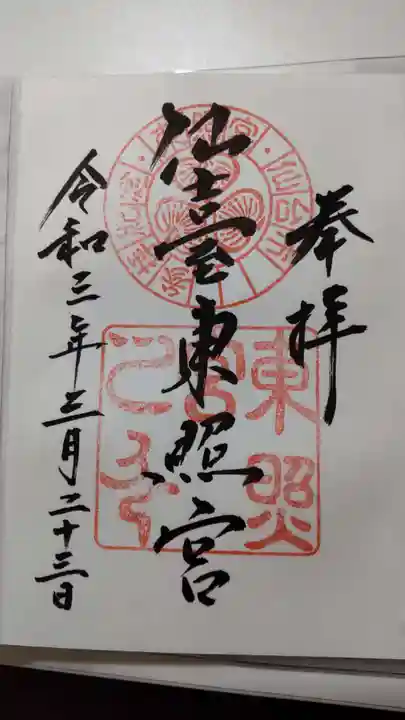 奉拝
仙臺東照宮
令和三年三月二十三日
東照